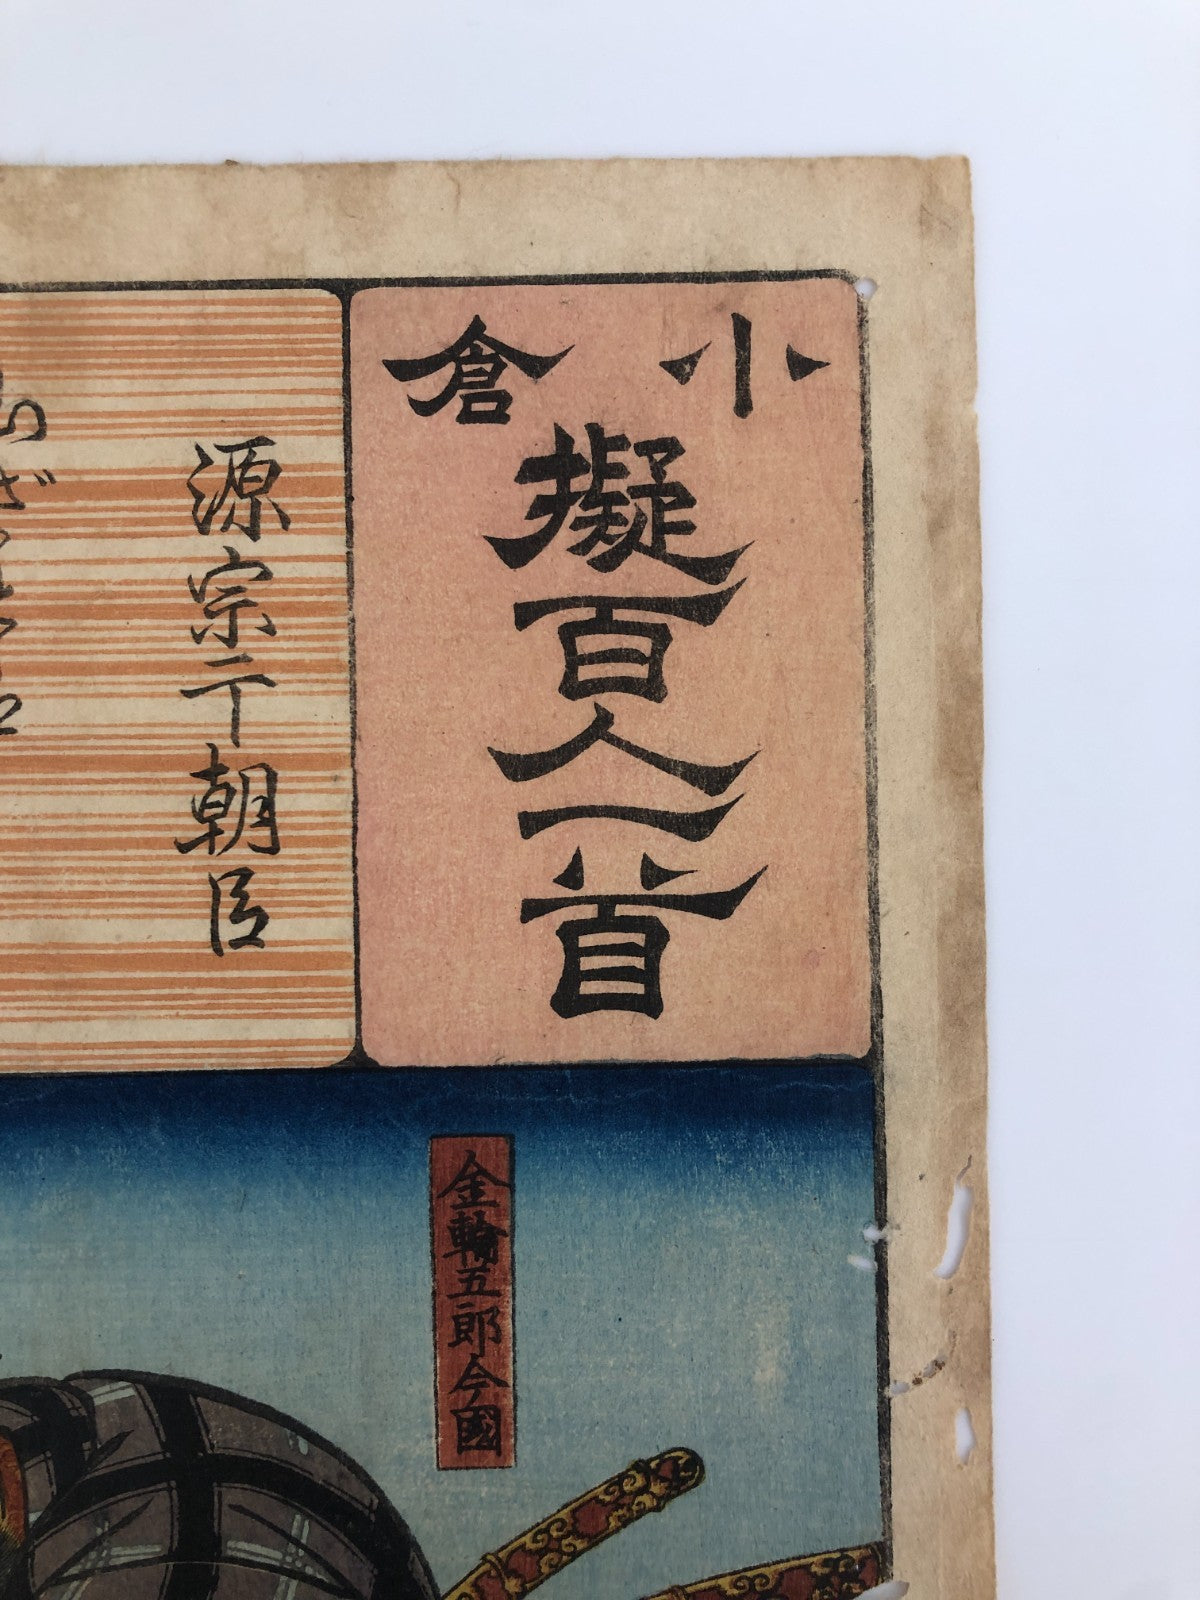 小倉
擬百人一首
源宗于朝臣
金輪五郎今國